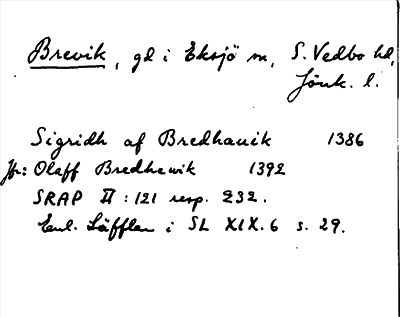 Brevik, gd i Eksjö sn, S. Vedbo hd,
Jönk. l.
Sigridh af Bredhauik 1386
Jfr: Olaff Bredhewik 1392
SRAP II : 121 resp. 232.
Enl. Läffler i SL XIX.6 s. 29.